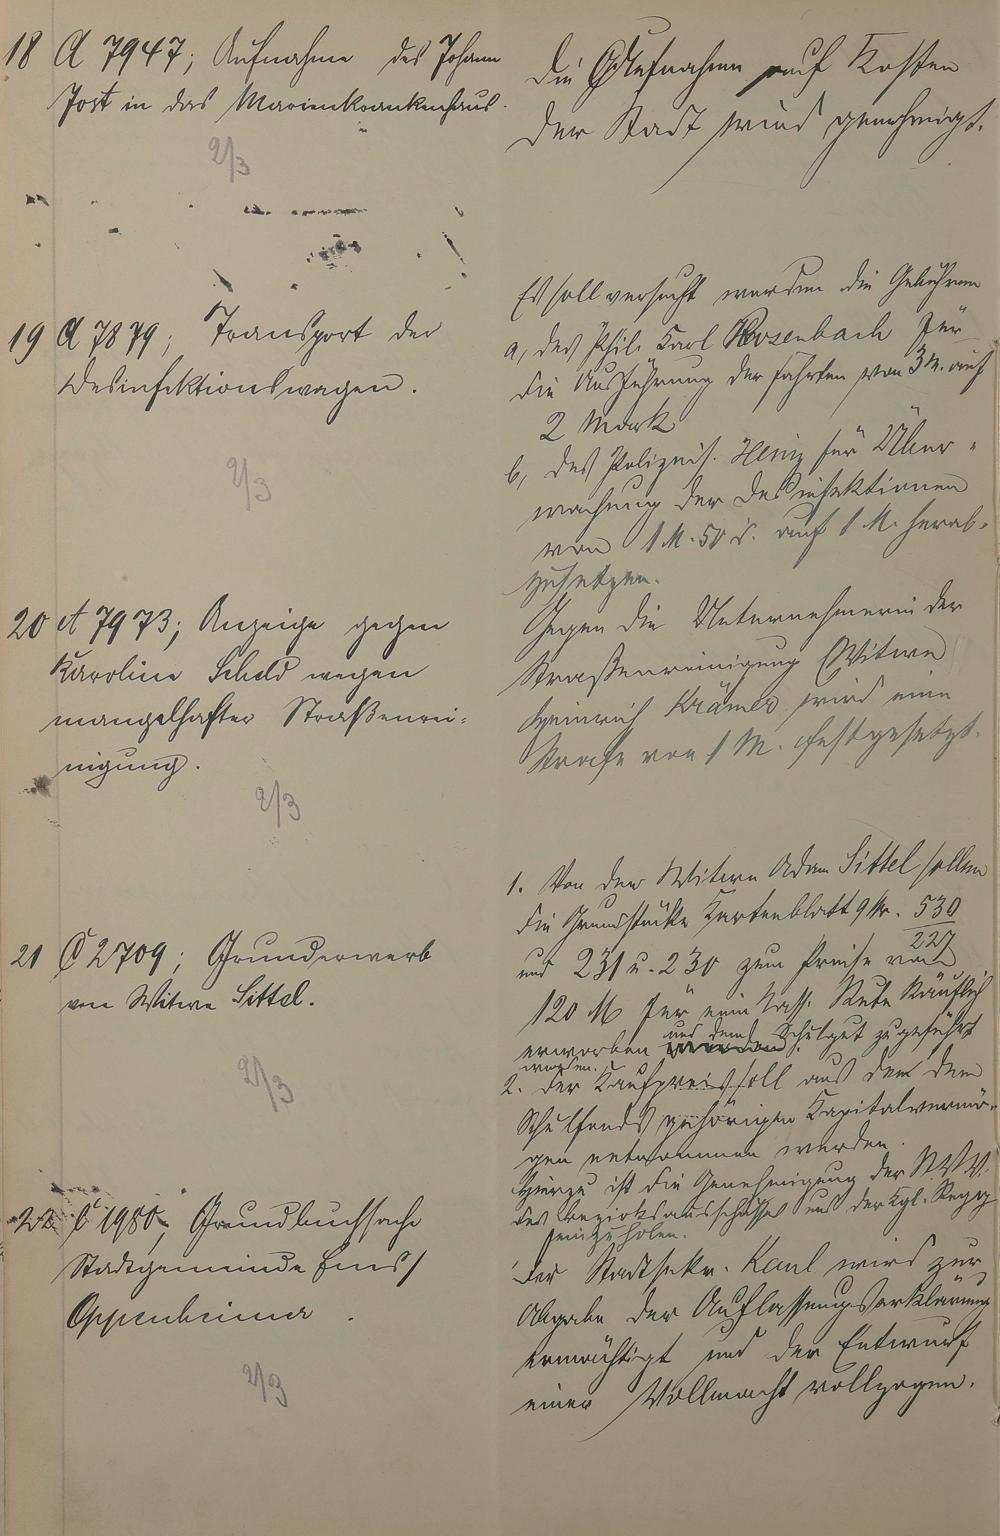 18 A 7947; Aufnahme des Johann
Jost in das Marienkrankenhaus.
2/3
Die Aufnahme auf Kosten
der Stadt wird genehmigt.
19 A 7879; Transport der
Desinfektionswagen.
2/3
Es soll versucht werden die Gebühren
a, des Phil. Karl Rosenbach für
die Ausführung der Fahrten von 3 M. auf
2 Mark
b, des Polizeis. Heinz für Über-
wachung der Desinfektionen
von 1 M. 50 d. auf 1 M. herab-
zusetzen.
20 A 7973; Anzeige gegen
Karoline Scheld wegen
mangelhafter Straßenrei-
nigung.
2/3
Gegen die Unternehmerin der
Straßenreinigung (Witwe
Heinrich Krämer wird eine
Strafe von 1 M. festgesetzt.
21 C 2709; Grunderwerb
von Witwe Sittel.
2/3
1. Von der Witwe Adam Sittel sollen
die Grundstücke Kartenblatt 9 Nr. 530/227
und 231 u. 230 zum Preise von
120 M für eine Nass. Rute käuflich
erworben und dem Schulgut zugeführt
werden.
2. Der Kaufpreis soll aus dem dem
Schulfonds gehörigen Kapitalvermö-
gen entnommen werden.
Hierzu ist die Genehmigung der
des Bezirksausschusses und der Kgl. Regrg
einzuholen.
22 C 1980, Grundbuchsache
Stadtgemeinde Ems/
Oppenheimer
2/3
Der Stadtsekr. Kaul wird zur
Abgabe der Auflassungserklärung
ermächtigt und der Entwurf
einer Vollmacht vollzogen.